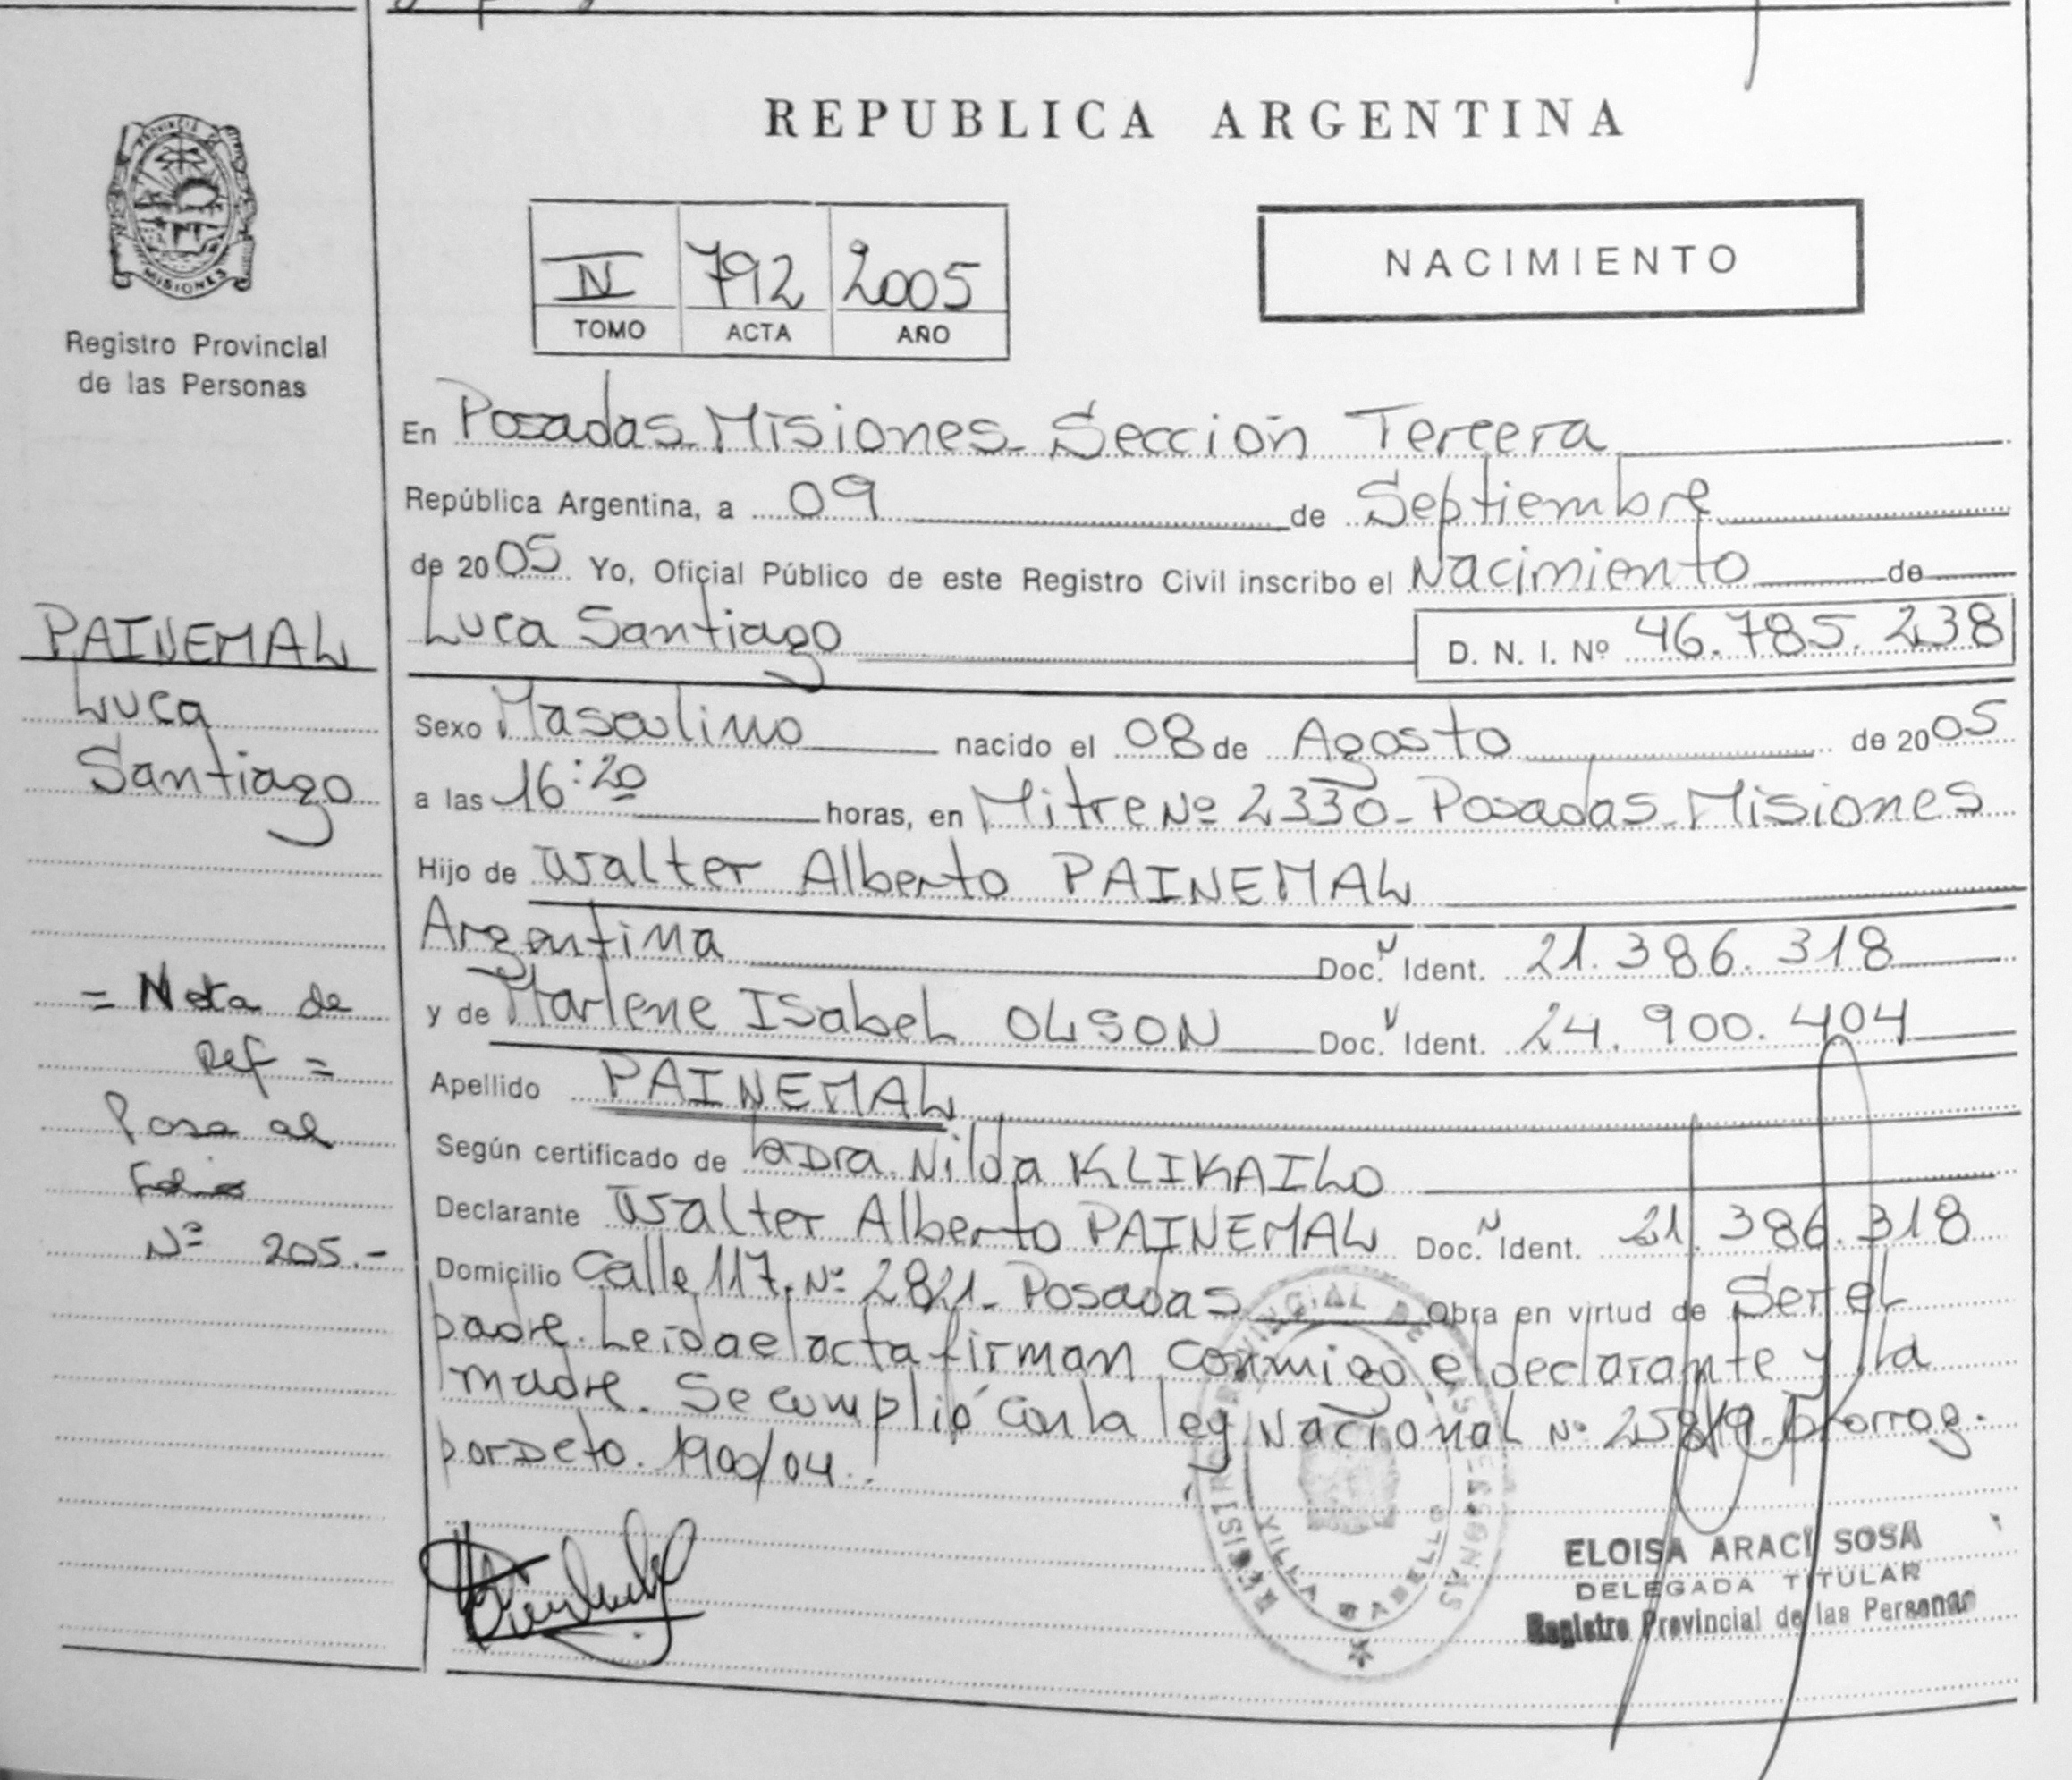 PROVINCIA DE
MISIONES
Registro Provincial
de las Personas
PAINEMAL
Luca
Santiago
= Nota de
Ref =
Pasa al
Folio
Nº 205.-
REPUBLICA ARGENTINA
IV 792 2005
TOMO ACTA AÑO
NACIMIENTO
En Posadas Misiones Sección Tercera
República Argentina, a 09 de Septiembre
de 2005 Yo, Oficial Público de este Registro Civil inscribo el Nacimiento de
Luca Santiago D. N. I. Nº 46.785.238
Sexo Masculino nacido el 08 de Agosto de 2005
a las 16:20 horas, en Mitre Nº 2330- Posadas Misiones
Hijo de Walter Alberto PAINEMAL
Argentina Doc. Ident. 21.386.318
y de Marlene Isabel OLSON Doc. Ident. 24.900.404
Apellido PAINEMAL
Según certificado de la Dra. Nilda KLIKAILO
Declarante Walter Alberto PAINEMAL Doc. Ident. 21.386.318
Domicilio Calle 117. Nº 2821- Posadas Obra en virtud de Ser el
padre. Leida el acta firman conmigo el declarante y la
madre. Se cumplió con la ley Nacional Nº 25819. prorrog.
por Dcto. 1900/04.
REGISTRO PROVINCIAL DE LAS PERSONAS
VILLA CABELLO
ELOISA ARACÍ SOSA
DELEGADA TITULAR
Registro Provincial de las Personas